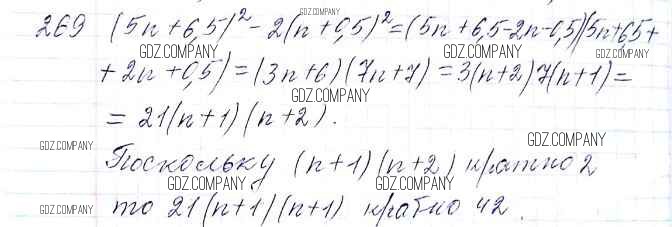 269 (5n+6,5)² - 2(n+0,5)² = (5n+6,5-2n-0,5)(5n+6,5+
GDZ.COMPANY GDZ.COMPANY GDZ.COMPANY GDZ.COMPANY
+ 2n + 0,5) = (3n+6)(7n+7) = 3(n+2)7(n+1) =
GDZ.COMPANY GDZ.COMPANY
= 21(n+1)(n+2).
GDZ.COMPANY GDZ.COMPANY GDZ.COMPANY
Поскольку (n+1)(n+2) кратно 2
GDZ.COMPANY GDZ.COMPANY
то 21(n+1)(n+1) кратно 42.
GDZ.COMPANY GDZ.COMPANY GDZ.COMPANY